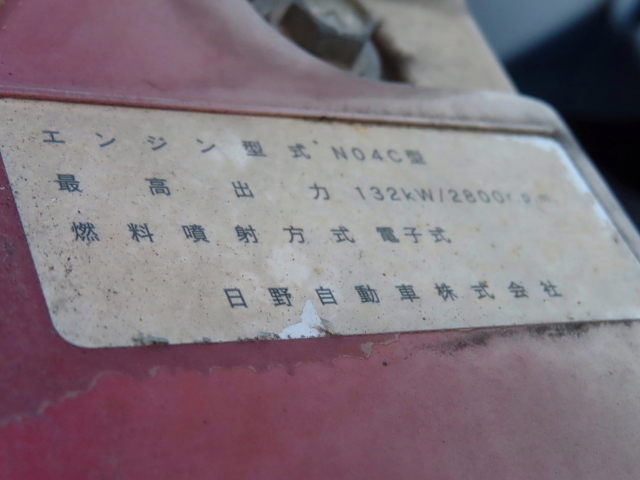 エンジン型式 N04C型
最高出力 132kW/2800rpm
燃料噴射方式 電子式
日野自動車株式会社